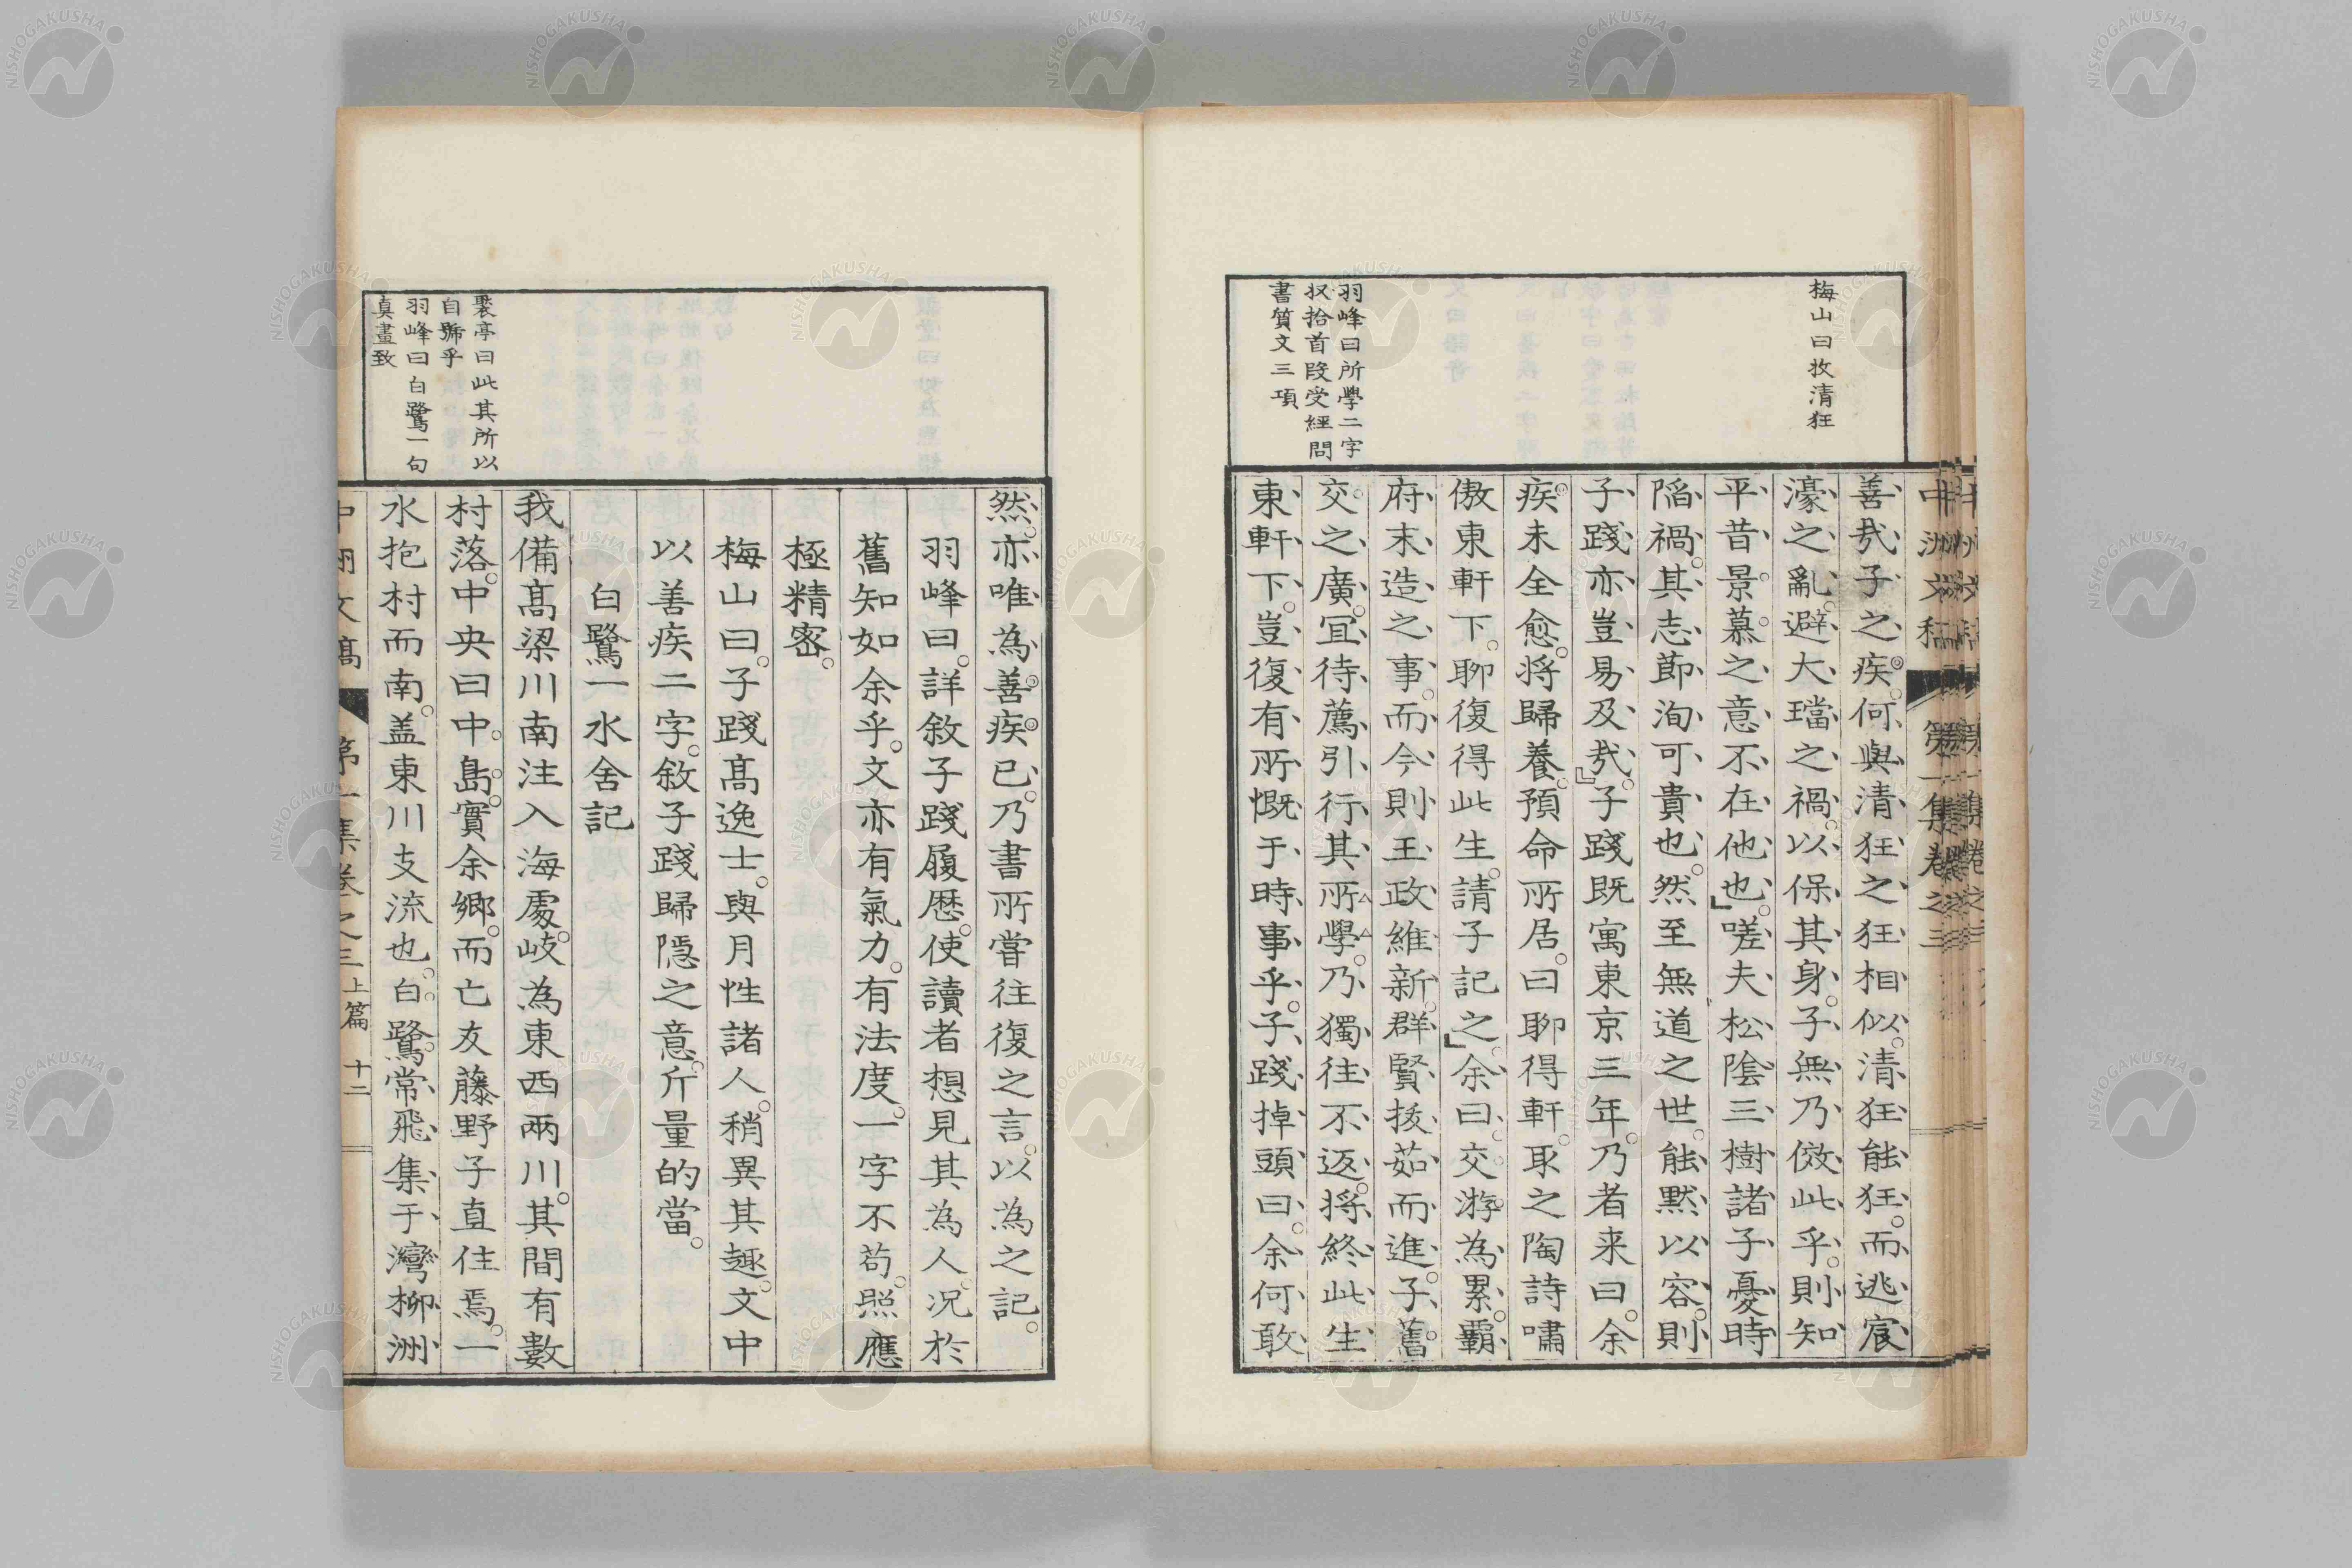 梅山曰攸清狂
羽峰曰所學二字
収拾首段受經問
書質文三項
善哉子之疾。何與清狂之狂相似。清狂能狂。而逃宸
濠之亂。避大璫之禍。以保其身。子無乃倣此乎。則知
平昔景慕之意不在他也。嗟夫松陰三樹諸子憂時
陷禍。其志節洵可貴也。然至無道之世。能默以容。則
子踐亦豈易及哉。子踐既寓東京三年。乃者来曰。余
疾未全愈。将歸養。預命所居。曰聊得軒。取之陶詩嘯
傲東軒下。聊復得此生。請子記之。余曰。交游為累。霸
府末造之事。而今則王政維新。群賢拔茹而進。子舊
交之廣。宜待薦引行其所學。乃獨往不返。将終此生
東軒下。豈復有所慨于時事乎。子踐掉頭曰。余何敢
中洲文稿 第一集卷之三
然。亦唯為善疾已。乃書所嘗往復之言。以為之記。
羽峰曰。詳敘子踐履歷。使讀者想見其為人。况於
舊知如余乎。文亦有氣力。有法度。一字不苟。照應
極精密。
梅山曰。子踐髙逸士。與月性諸人。稍異其趣。文中
以善疾二字。敘子踐歸隠之意。斤量的當。
白鷺一水舍記
我備髙梁川南注入海處。岐為東西兩川。其間有數
村落。中央曰中島。實余鄉。而亡友藤野子直住焉。一
水抱村而南。盖東川支流也。白鷺常飛集于灣柳洲
裂亭曰此其所以
自號乎
羽峰曰白鷺一句
真畫致
中洲文稿 第一集卷之三 上篇 十二